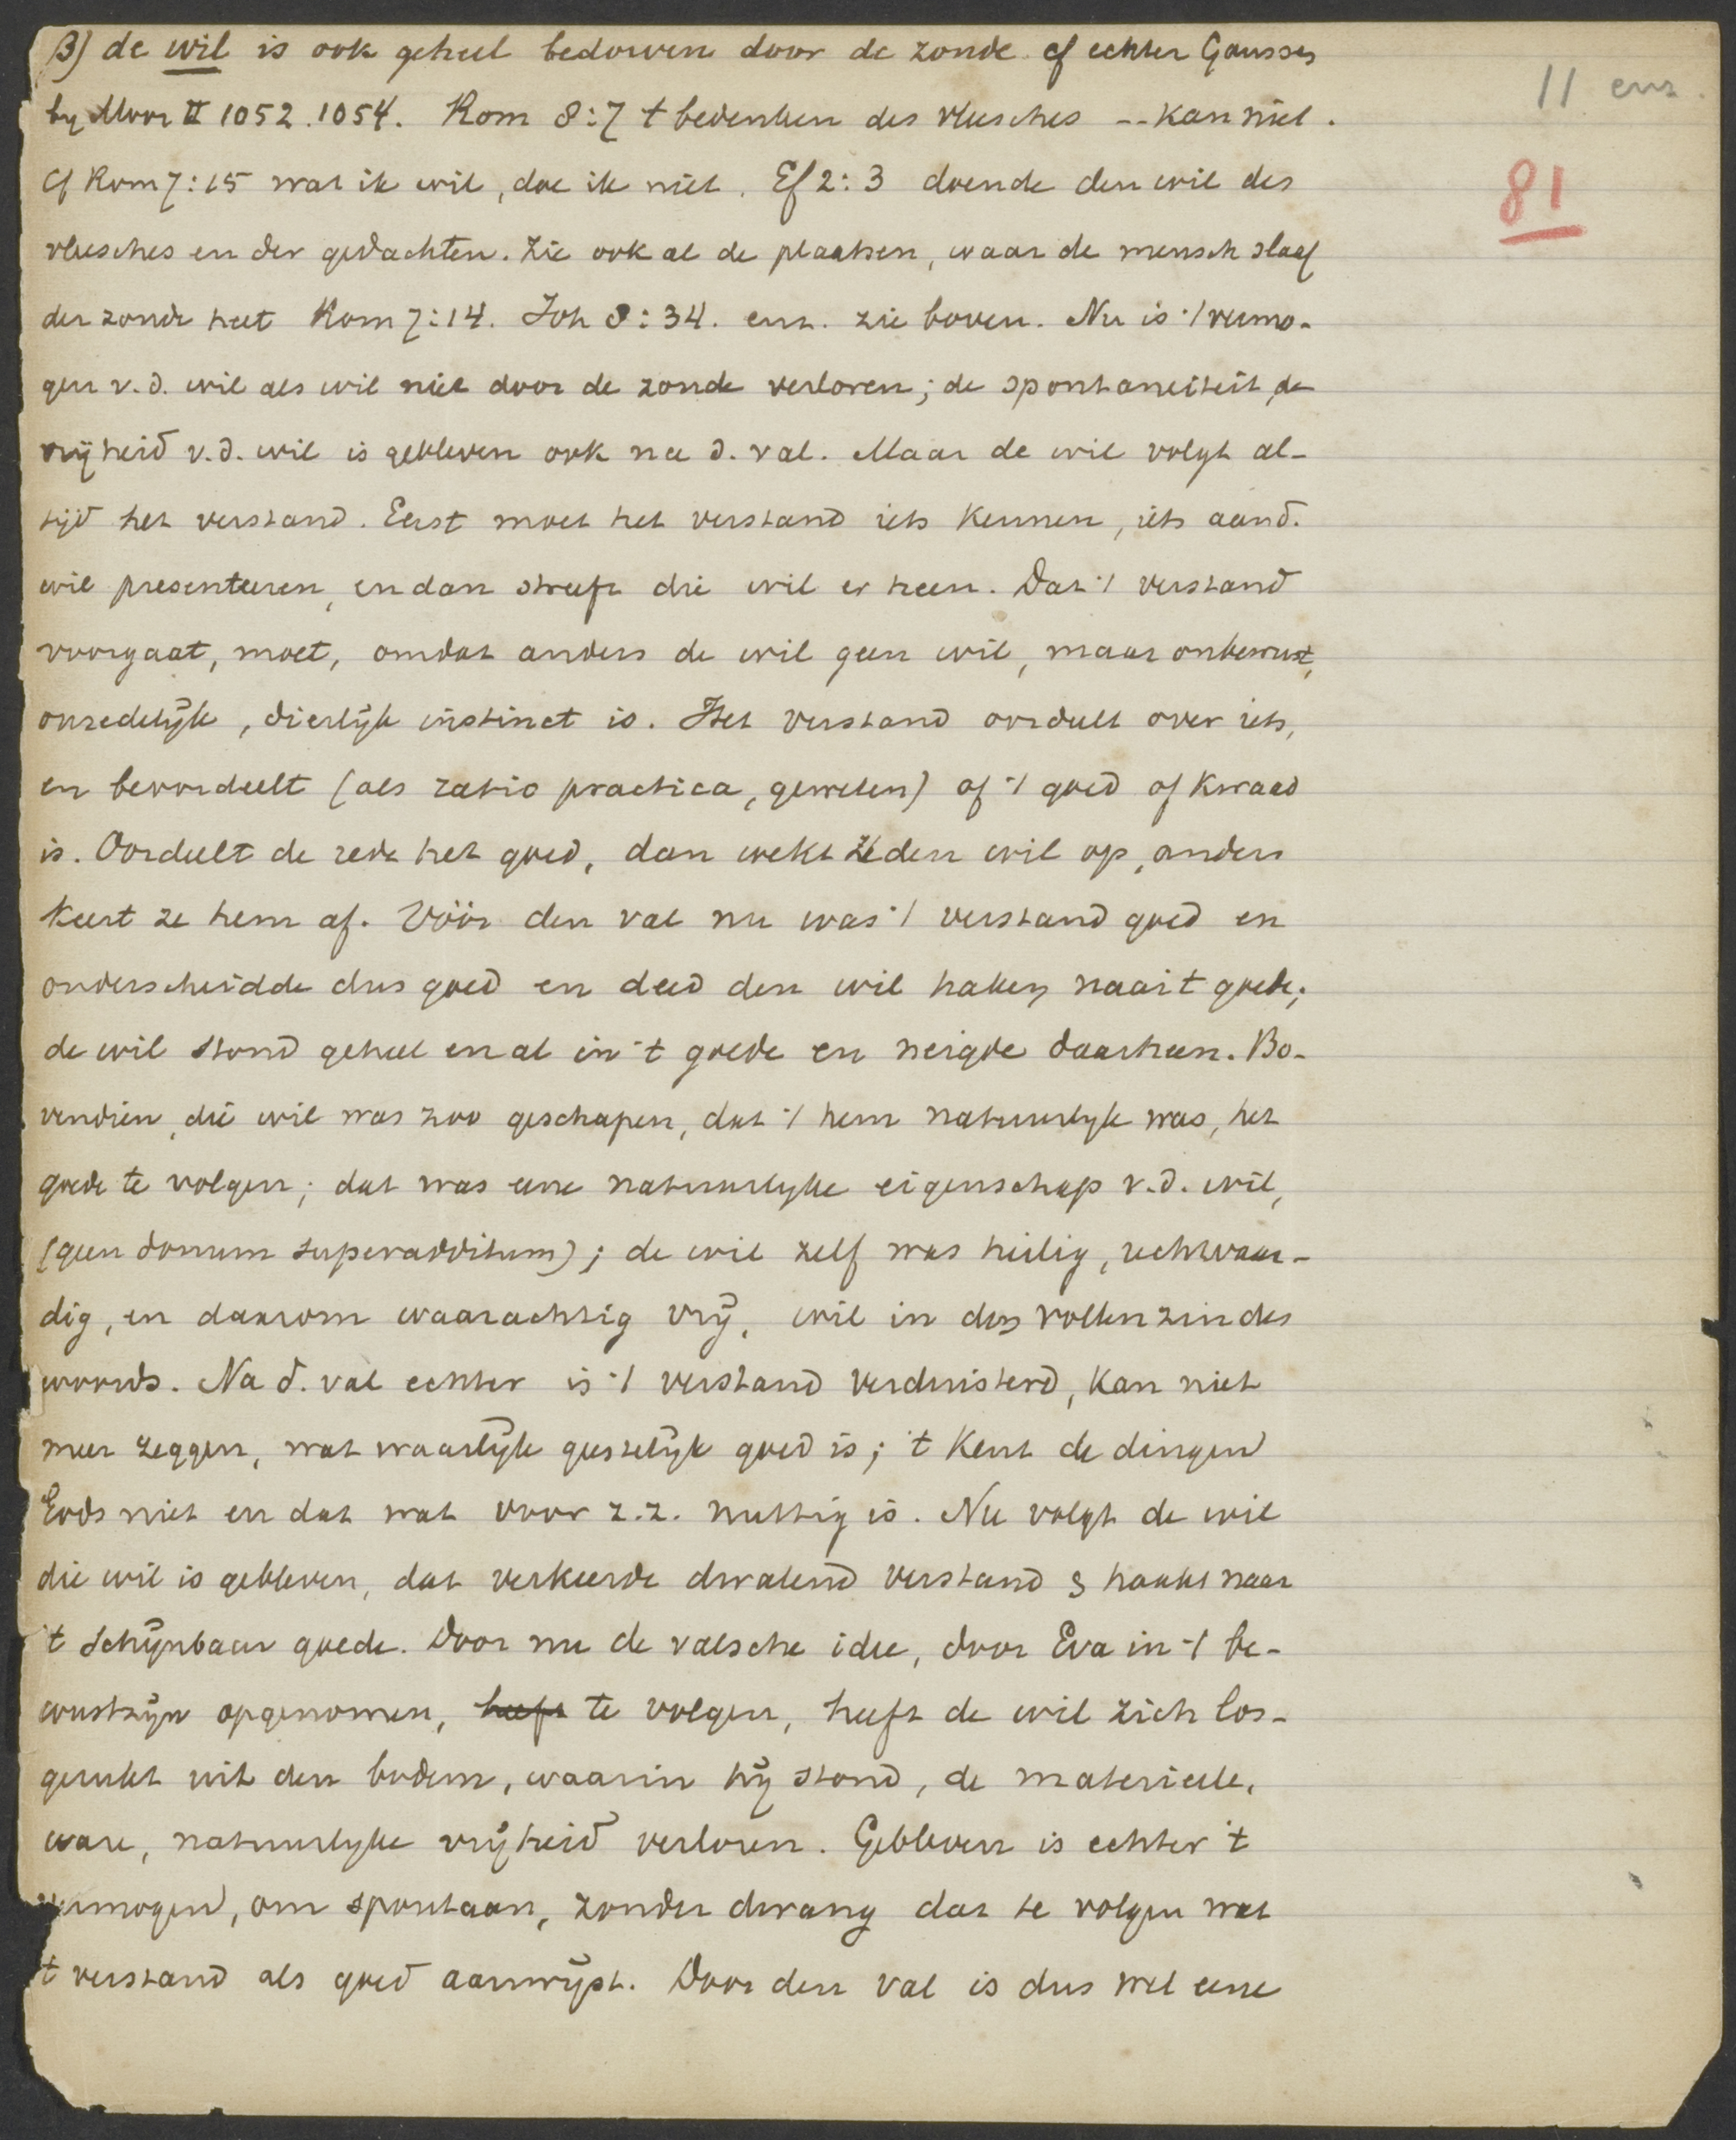 β) de wil is ook geheel bedorven door de zonde cf echter Gousset
by Moor II 1052.1054. Rom 8:7 't bedenken des vleesches -- kan niet.
Cf Rom 7:15 wat ik wil, doe ik niet. Ef 2:3 doende den wil des
vleesches en der gedachten. Zie ook al de plaatsen, waar de mensch slaaf
der zonde heet Rom 7:14. Joh 8:34. enz. zie boven. Nu is 't vermo-
gen v.d. wil als wil niet door de zonde verloren; de spontaneiteit, de
vrijheid v.d. wil is gebleven ook na d. val. Maar de wil volgt al-
tijd het verstand. Eerst moet het verstand iets kennen, iets aan d.
wil presenteeren, en dan streeft die wil er heen. Dat 't verstand
voorgaat, moet, omdat anders de wil geen wil, maar onbewust,
onzedelijk, dierlijk instinct is. Het verstand oordeelt over iets,
en beoordeelt (als ratio practica, geweten) of 't goed of kwaad
is. Oordeelt de rede het goed, dan wekt ze den wil op, anders
keert ze hem af. Vóór den val nu was 't verstand goed en
onderscheidde dus goed en deed den wil haken naar 't goede;
de wil stond geheel en al in 't goede en neigde daarheen. Bo-
vendien, die wil was zoo geschapen, dat 't hem natuurlyk was, het
goede te volgen; dat was eene natuurlyke eigenschap v.d. wil,
(geen donum superadditum); de wil zelf was heilig, rechtvaar-
dig, en daarom waarachtig vrij, wil in den vollen zin des
woords. Na d. val echter is 't verstand verduisterd, kan niet
meer zeggen, wat waarlijk geestelijk goed is; 't kent de dingen
Gods niet en dat wat voor z.z. nuttig is. Nu volgt de wil
die wil is gebleven, dat verkeerde dwalend verstand & haakt naar
't schijnbaar goede. Door nu de valsche idee, door Eva in 't be-
wustzijn opgenomen, heeft te volgen, heeft de wil zich los-
gerukt uit den bodem, waarin hij stond, de materieele,
ware, natuurlyke vrijheid verloren. Gebleven is echter 't
vermogen, om spontaan, zonder dwang dat te volgen wat
't verstand als goed aanwijst. Door den val is dus wel eene
11 enz.
81